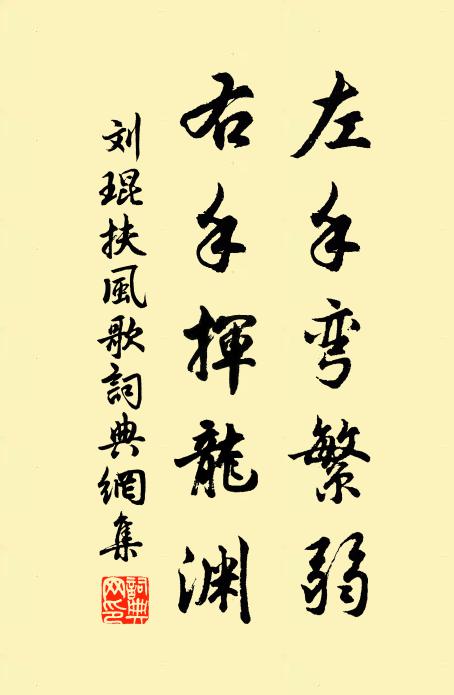 左手弯繁弱
右手揮龍渊
刘琨扶風歌詞典網集
詞典網印